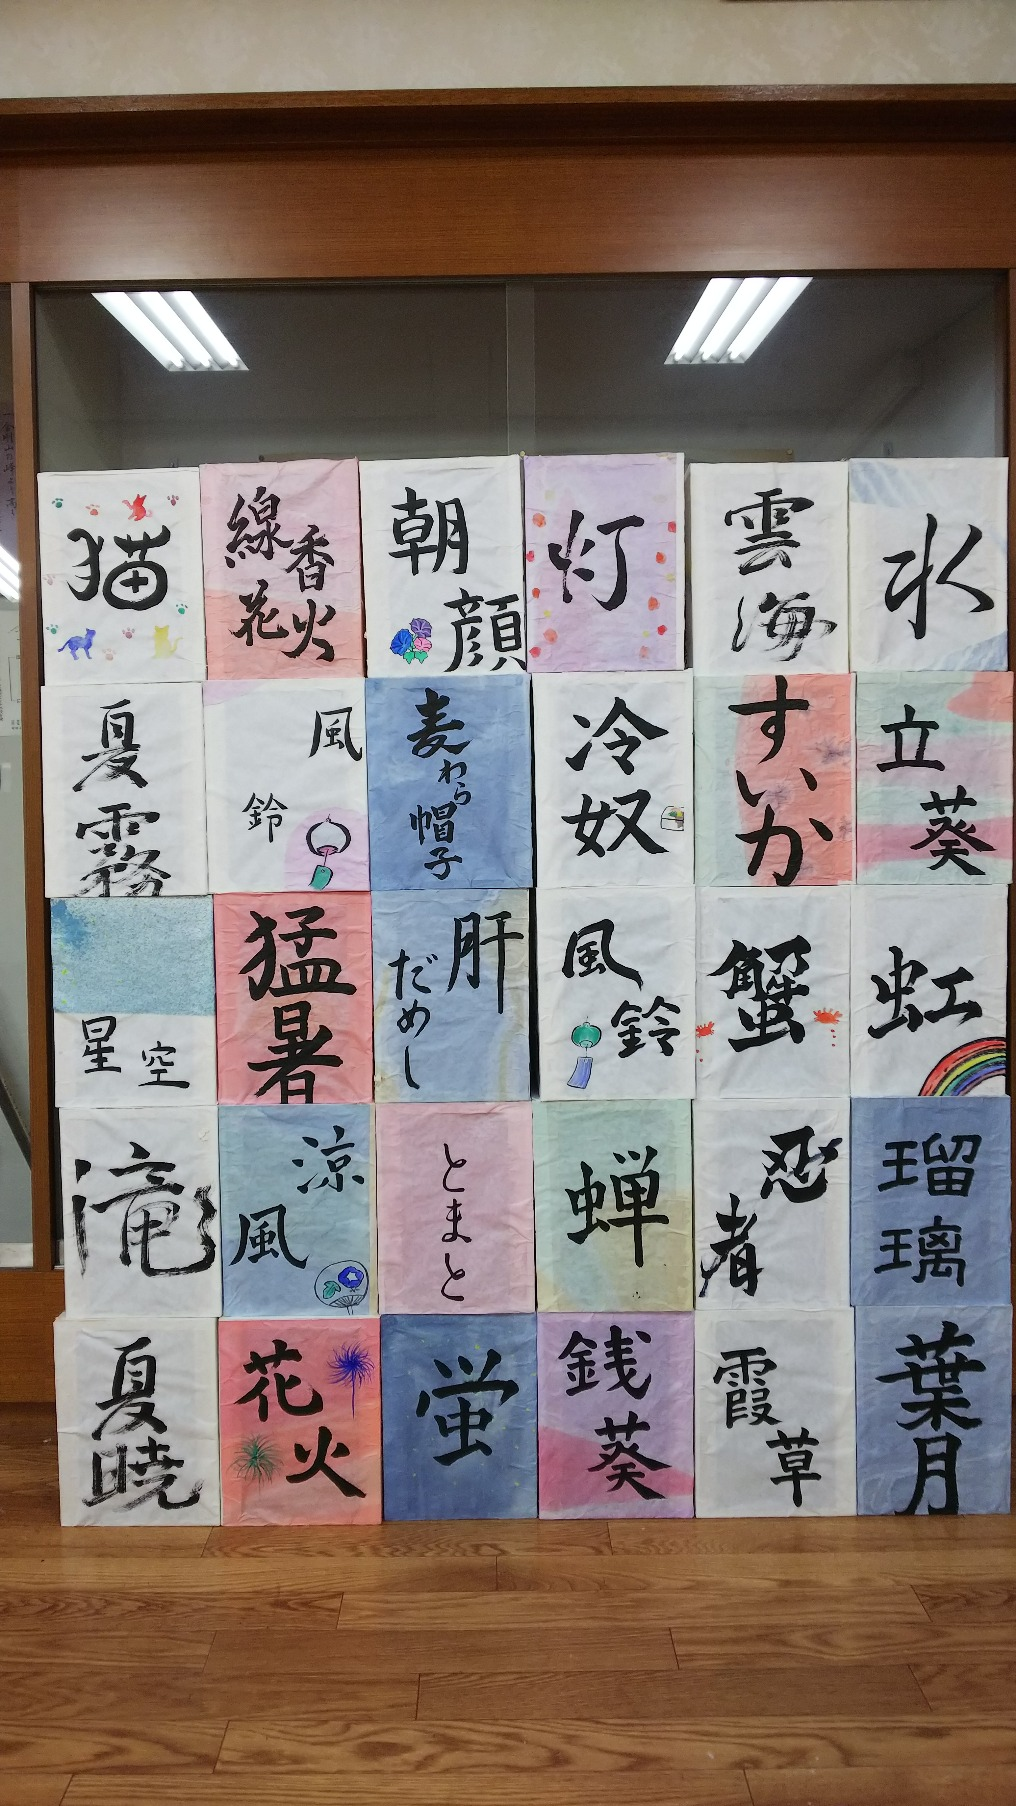 猫
線香
花火
朝
顔
灯
雲
海
水
夏
霧
風
鈴
麦
わら
帽
子
冷
奴
すいか
立
葵
星
空
猛
暑
肝
だめし
風
鈴
蟹
虹
滝
涼
風
とまと
蝉
忍
者
瑠
璃
夏
暁
花
火
蛍
銭
葵
霞
草
葉
月